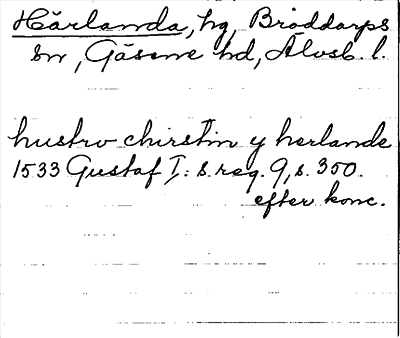 Härlanda, hg, Bröddarps
sn, Gäsene hd, Älvsb. l.
hustrv chirstin y herlande
1533 Gustaf I:s reg. 9, s. 350.
efter konc.